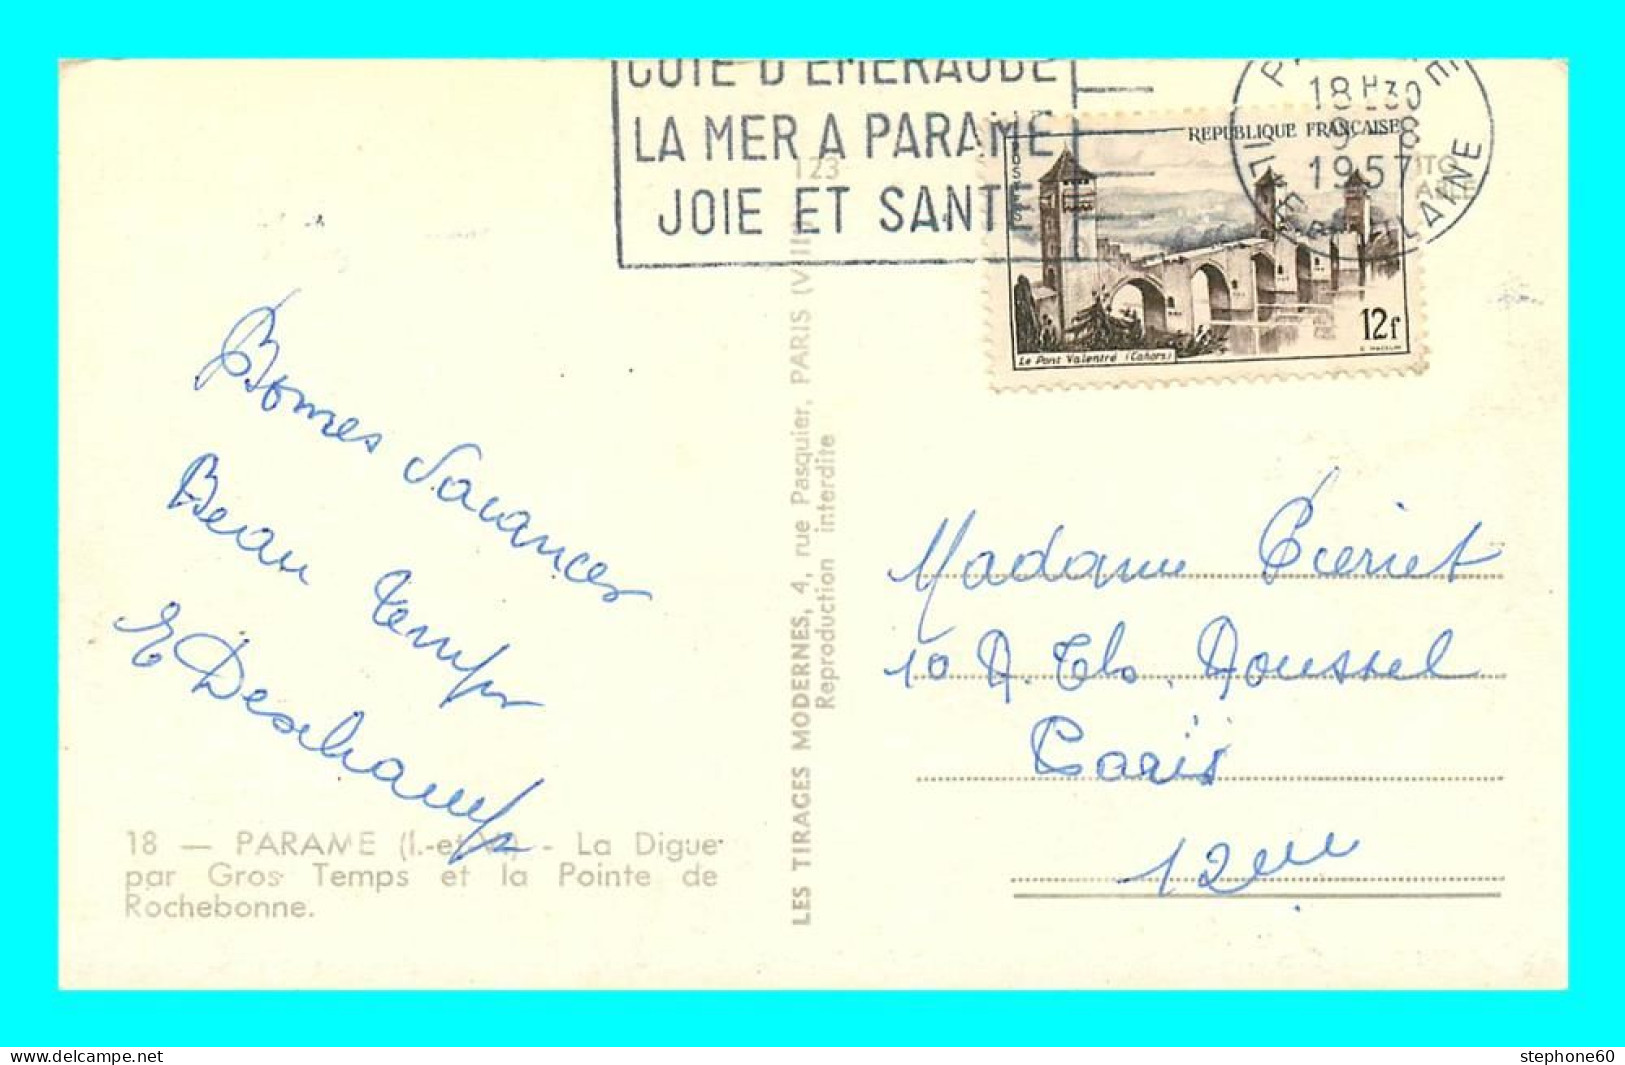 CÔTE D'EMERAUDE
LA MER A PARAME
JOIE ET SANTE
18H30
9 8
1957
ILLE ET VILAINE
REPUBLIQUE FRANÇAISE
POSTES
12f
Le Pont Valentré (Cahors)
123
Bonnes Vacances
Beau temps
E Deschamps
18 — PARAME (I.-et-V.) - La Digue
par Gros Temps et la Pointe de
Rochebonne.
LES TIRAGES MODERNES, 4, rue Pasquier, PARIS (VIII)
Reproduction interdite
Madame Pieriet
10 R. Th. Roussel
Paris
12eme
www.delcampe.net
stephone60